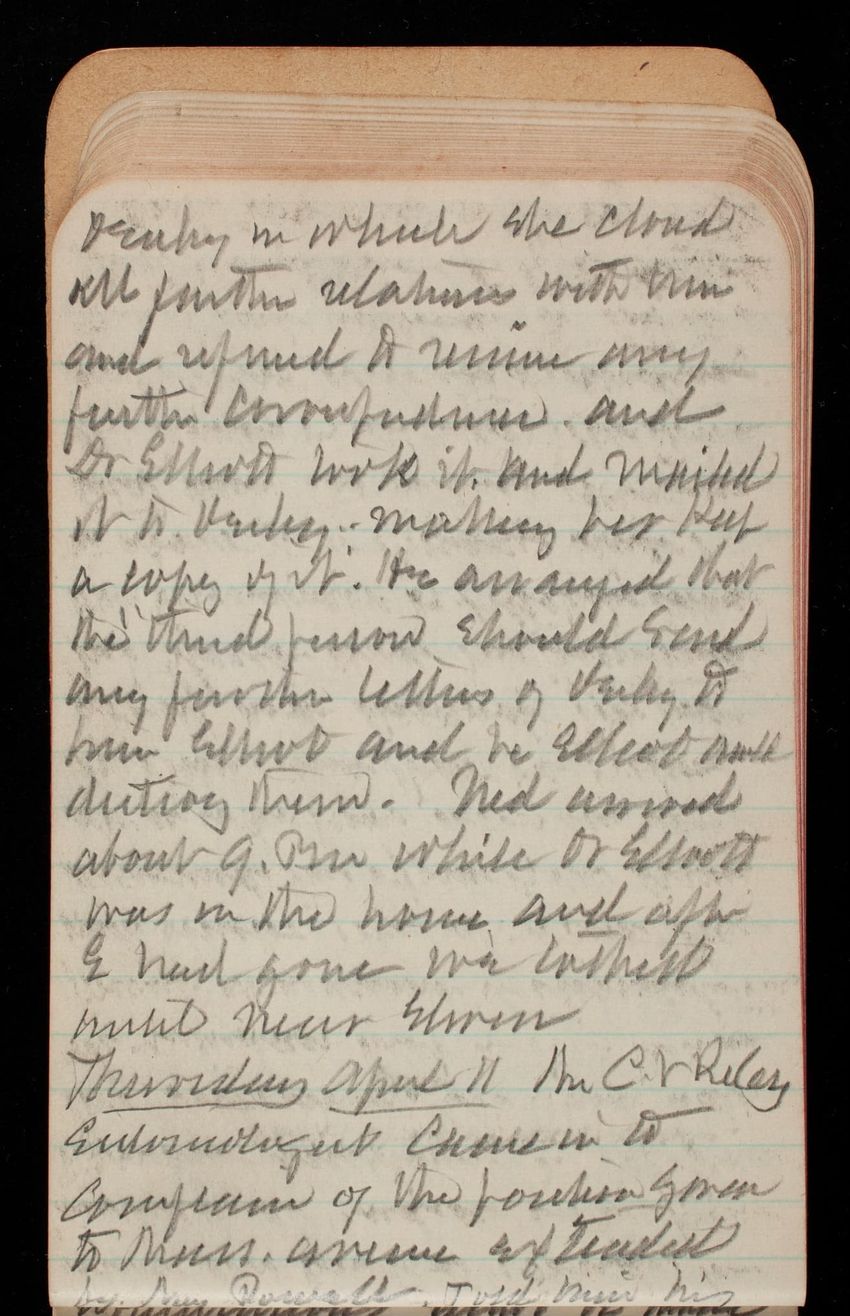 Verley in which she closed
all further relations with him
and refused to receive any
further correspondence. and
Dr Elliott took it. and mailed
it to Verley. making her keep
a copy of it. He arranged that
the "third person should send
any further letters of Verley to
him Elliott and he Elliott will
destroy them. Ned arrived
about 9. Pm while Dr Elliott
was in the house and after
E had gone we talked
until near Eleven
Thursday April 11 Mr C. V Riley
Entomologist came in to
complain of the position given
to Mass. avenue extended
by Powell. Told him his